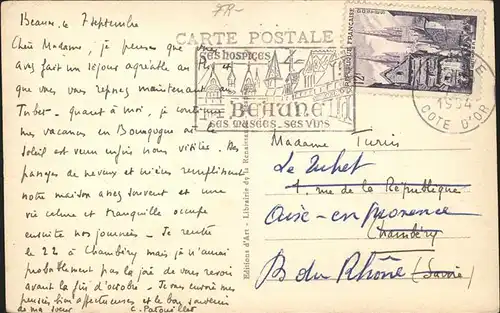 Beaune, le 7 septembre
Chère Madame, je pense que vous
avez fait un séjour agréable au
que vous vous reprenez maintenant au
Tubet - quant à moi, je continue
mes vacances en Bourgogne où le
soleil est venu enfin nous visiter. Des
passages de neveux et nièces remplissent
notre maison assez souvent et une
vie calme et tranquille occupe
ensuite nos journées - Je rentre
le 22 à Chambéry mais je n'aurai
probablement pas la joie de vous revoir
avant la fin d'octobre - Je vous envoie mes
pensées bien affectueuses et le bon souvenir
de ma soeur C. Patouillet
CARTE POSTALE
SES HOSPICES
BEAUNE
SES MUSÉES - SES VINS
RÉPUBLIQUE FRANÇAISE
12F
1954
COTE D'OR
Editions d'Art - Librairie de la Renaissance
Madame Turin
Le Tubet
4 rue de la République
Aix-en-Provence
Chambéry
B du Rhône (Savoie)